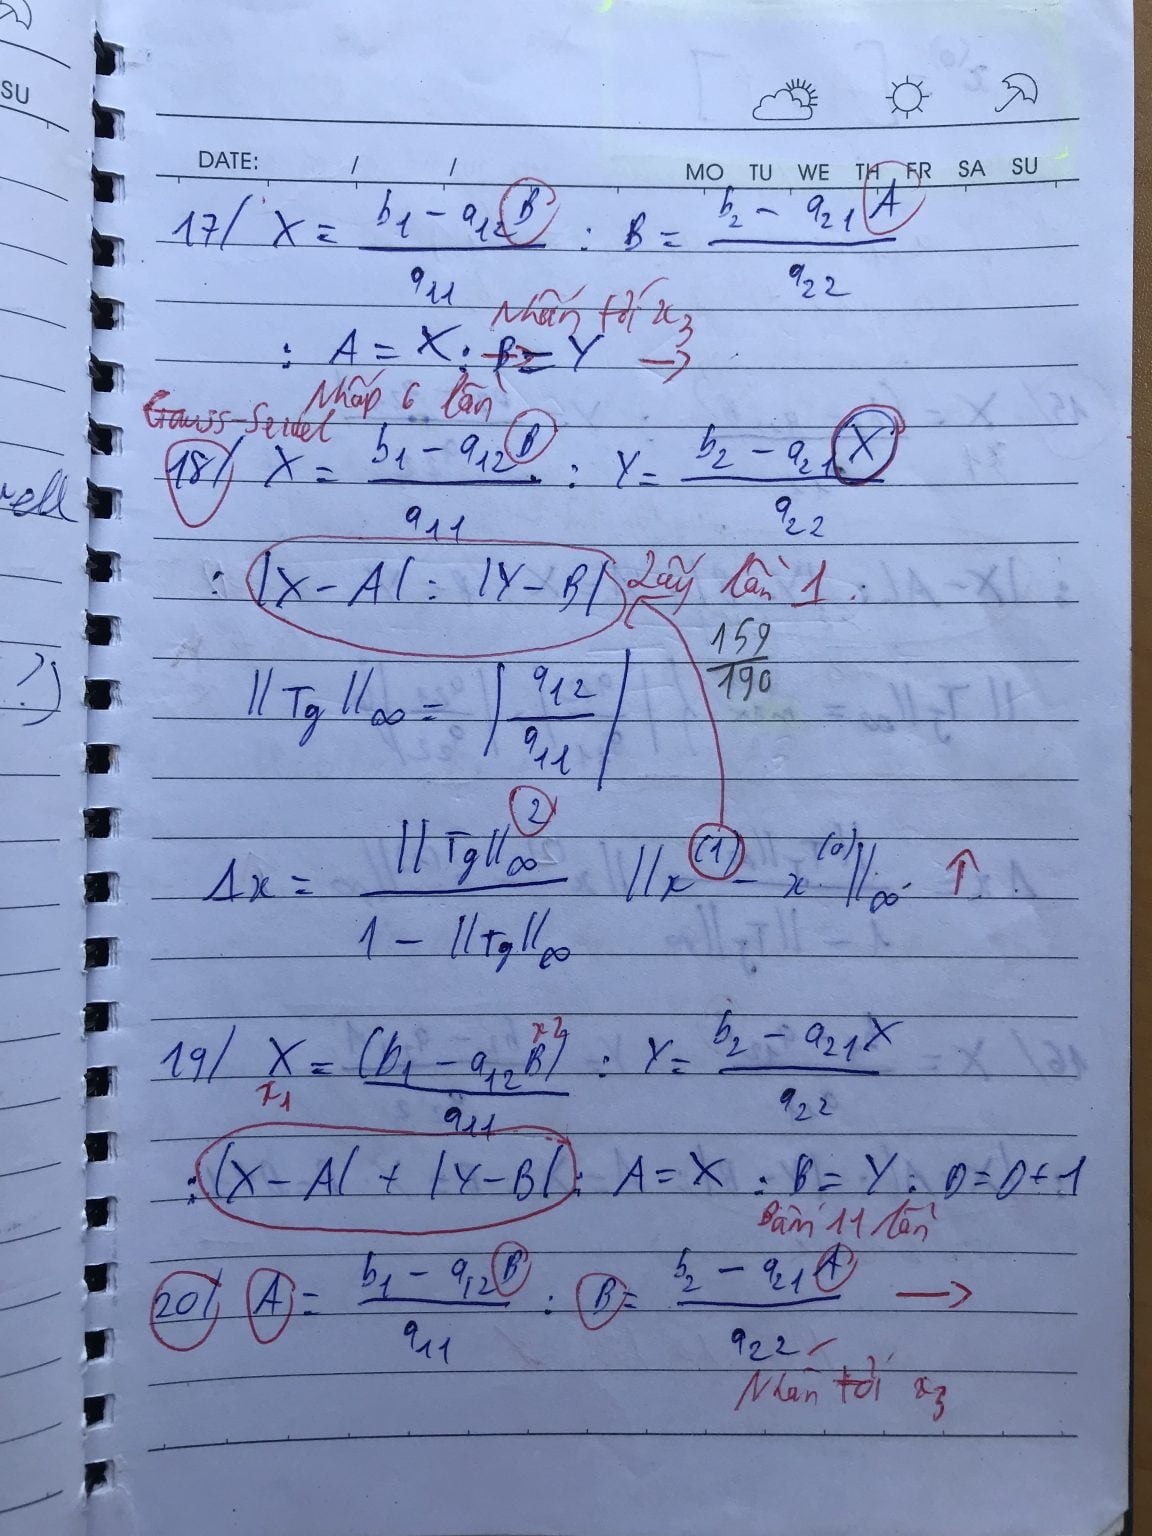 SU
DATE: / /
MO TU WE TH FR SA SU
17/ X = (b₁ - a₁₂B)/a₁₁ : B = (b₂ - a₂₁A)/a₂₂
Nhấn tới x₃
: A = X : B = Y →
Nhấp 6 lần
Gauss-Seidel
18/ X = (b₁ - a₁₂B)/a₁₁ : Y = (b₂ - a₂₁X)/a₂₂
: |X - A| : |Y - B| Lấy lần 1
159/190
||Tg||∞ = |a₁₂/a₁₁|
Δx = ||Tg||∞²/(1 - ||Tg||∞) ||x⁽¹⁾ - x⁽⁰⁾||∞ ↑
19/ X = (b₁ - a₁₂B)/a₁₁ : Y = (b₂ - a₂₁X)/a₂₂
x₂
x₁
: |X - A| + |Y - B| : A = X : B = Y : D = D + 1
Bấm 11 lần
20/ A = (b₁ - a₁₂B)/a₁₁ : B = (b₂ - a₂₁A)/a₂₂ →
Nhấn tới x₃
?)